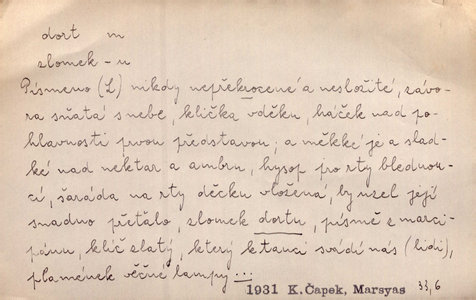 dort m
zlomek -u
Písmeno (L) nikdy nepřekrocené a nesložité, závo-
ra sňatá s nebe, klička vděku, háček nad po-
hlavností prvou představou; a měkké je a slad-
ké nad nektar a ambru, hysop pro rty blednou-
cí, šaráda na rty děcku vložená, by uzel její
snadno přeťalo, zlomek dortu, písmě z marci-
pánu, klíč zlatý, který k tanci svádí nás (lidi),
plamének věčné lampy ...
1931 K.Čapek, Marsyas 33,6